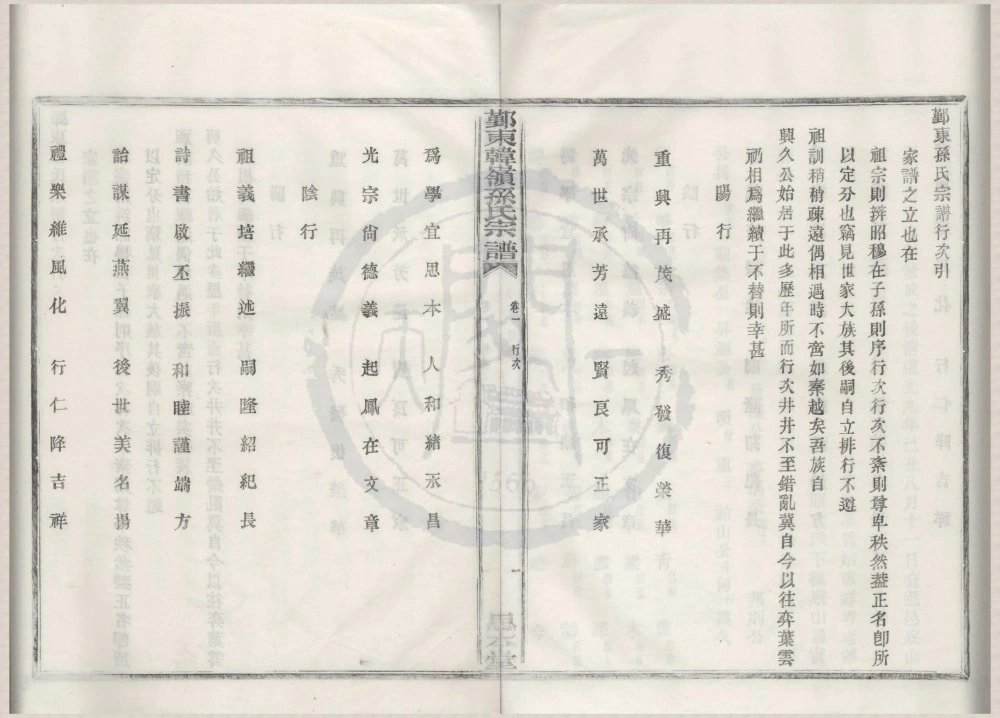 鄞東孫氏宗譜行次引
家譜之立也在
祖宗則辨昭穆在子孫則序行次行次不紊則尊卑秩然蓋正名卽所
以定分也竊見世家大族其後嗣自立排行不遵
祖訓稍稍疎遠偶相遇時不啻如秦越矣吾族自
興久公始居于此多歷年所而行次井井不至錯亂冀自今以往奕葉雲
礽相爲繼續于不替則幸甚
陽行
重興再茂盛 秀發復榮華
萬世承芳遠 賢良可正家
鄞東韓嶺孫氏宗譜 卷一 行次 一
爲學宜思本 人和緒永昌
光宗尙德義 起鳳在文章
陰行
祖義培繼述 嗣隆紹紀長
詩書啟丕振 和睦謹端方
詒謀延燕翼 後世美名揚
禮樂維風化 行仁降吉祥